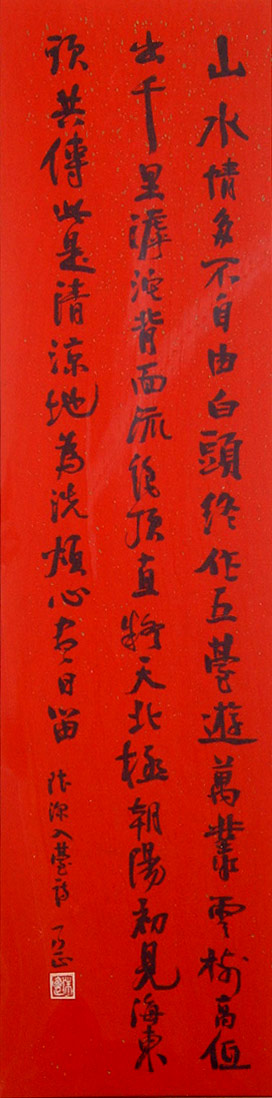 山水情多不自由白頭終作五臺遊萬叢雲樹高低
出千里滹沱背面流絕頂直將天北極朝陽初見海東
頭共傳此是清涼地為洗煩心日留 陸深入臺詩